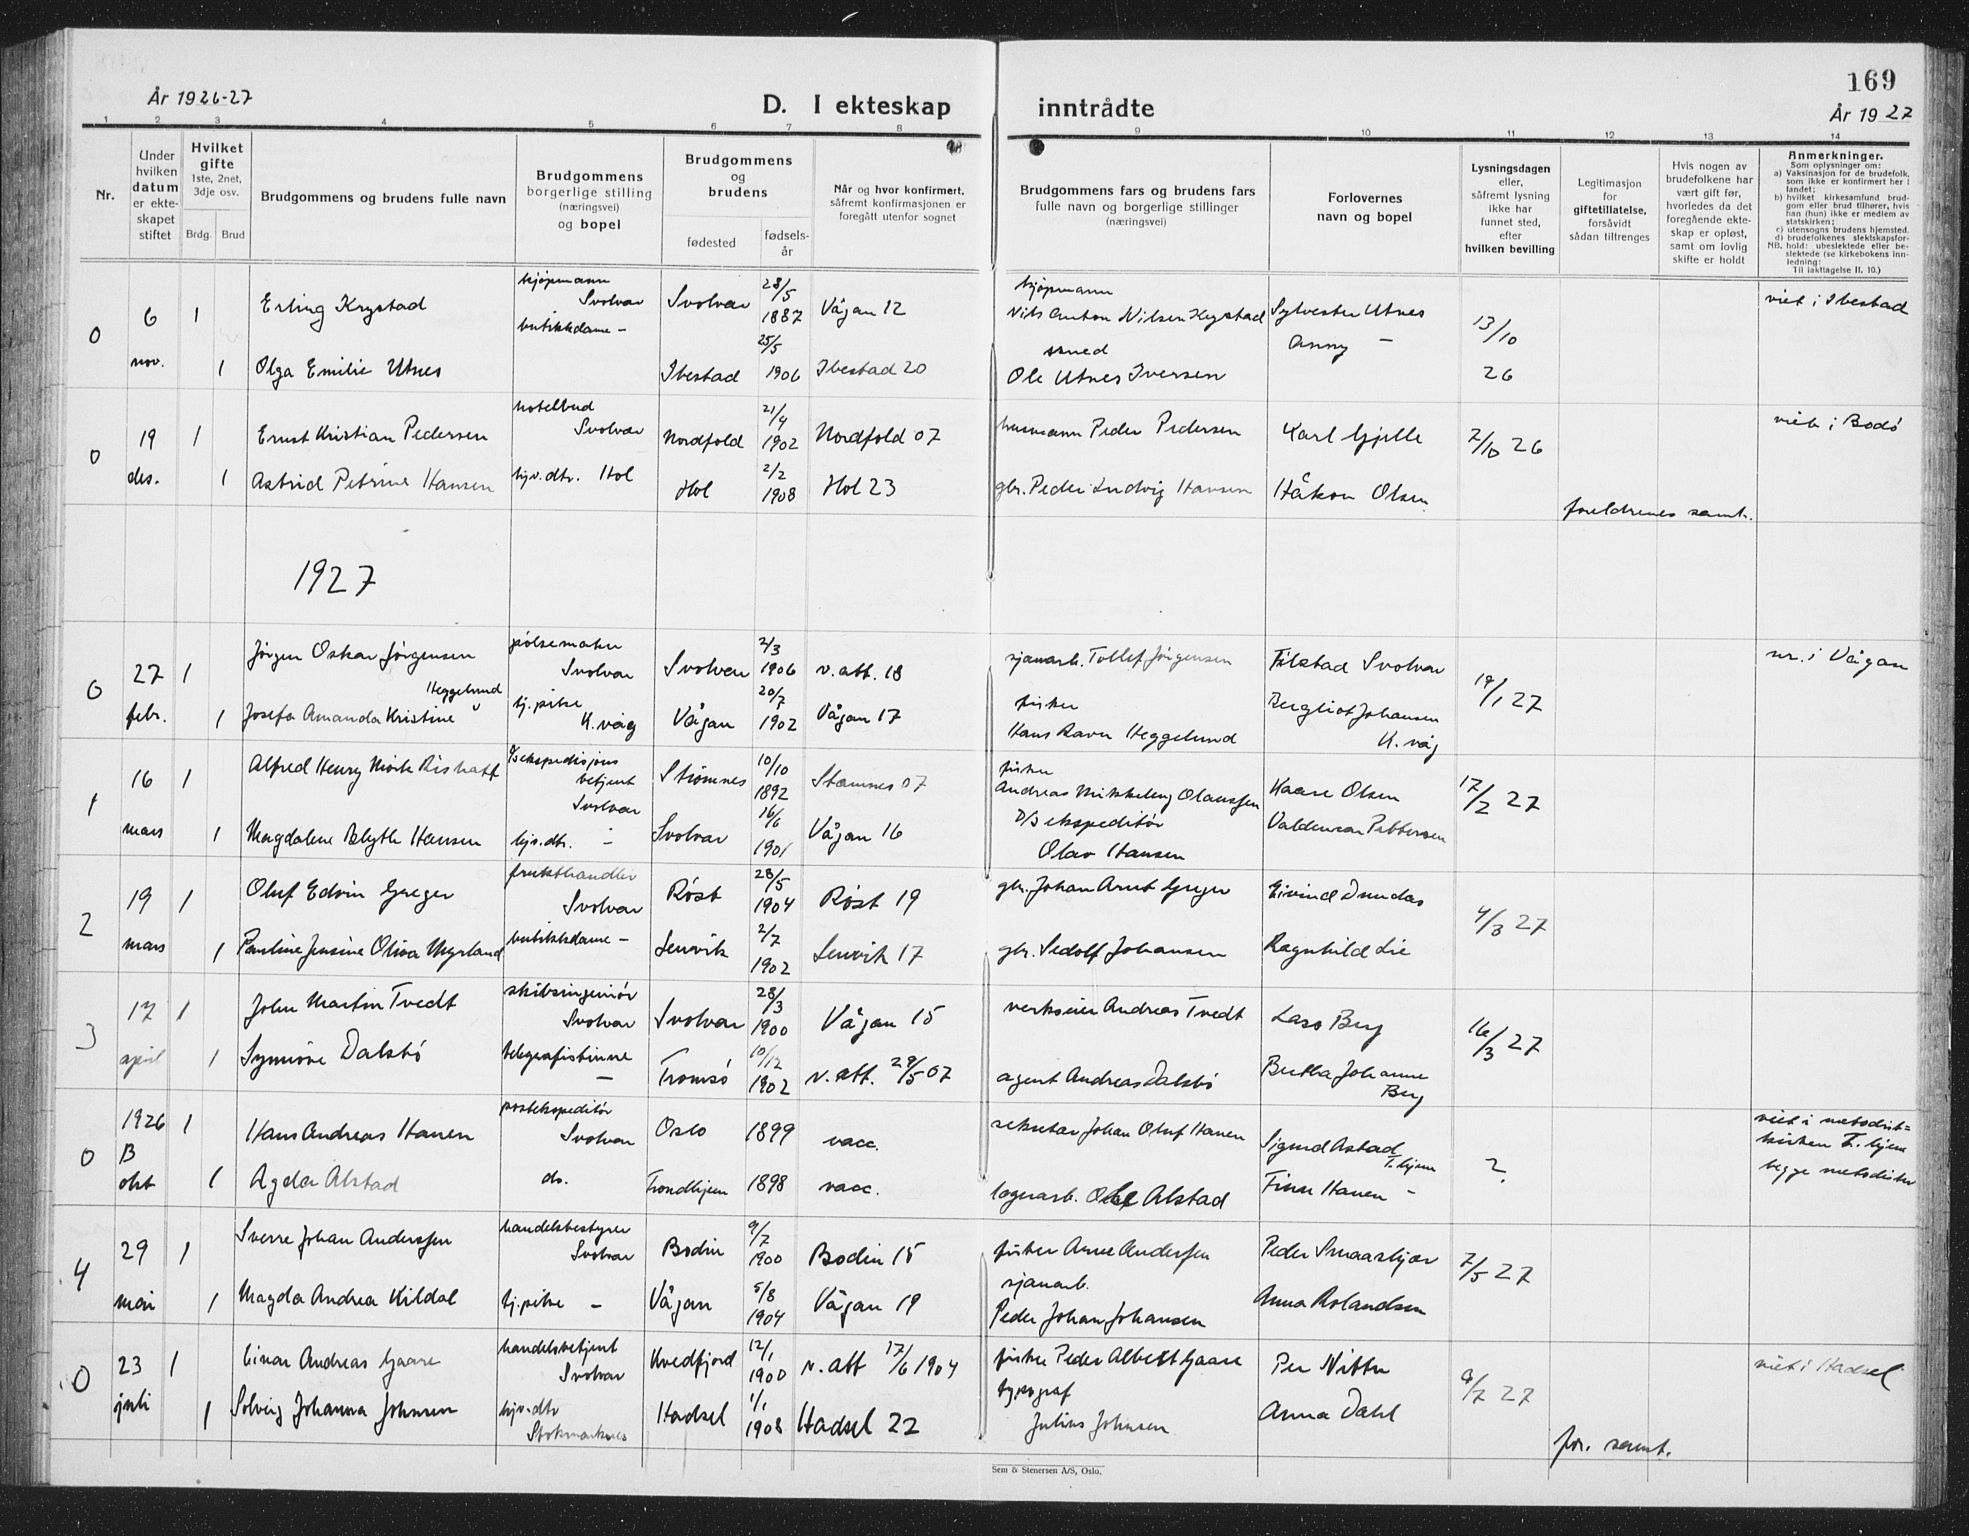 År 1926-27
D. I ekteskap
inntrådte
169
År 1927
1 2 3 4 5 6 7 8 9 10 11 12 13 14
Nr.
Under hvilken datum er ekte-skapet stiftet
Hvilket gifte 1ste, 2net, 3dje osv.
Brdg. Brud
Brudgommens og brudens fulle navn
Brudgommens borgerlige stilling (næringsvei) og bopel
Brudgommens og brudens
fødested
fødsels-år
Når og hvor konfirmert, såfremt konfirmasjonen er foregått utenfor sognet
Brudgommens fars og brudens fars fulle navn og borgerlige stillinger (næringsvei)
Forlovernes navn og bopel
Lysningsdagen eller, såfremt lysning ikke har funnet sted, efter hvilken bevilling
Legitimasjon for giftetillatelse, forsåvidt sådan tiltrenges
Hvis nogen av brudefolkene har vært gift før, hvorledes da det foregående ekte-skap er opløst, samt om lovlig skifte er holdt
Anmerkninger.
Som oplysninger om:
a) Vaksinasjon for de brudefolk, som ikke er konfirmert her i landet;
b) hvilket kirkesamfund brud-gom eller brud tilhører, hvis han (hun) ikke er medlem av statskirken;
c) utensogns brudens hjemsted.
d) brudefolkenes slektskapsfor-hold: ubeslektede eller be-slektede (se kirkebokens inn-ledning:
NB.
Til iakttagelse II. 10.)
0 6 nov. 1 Erling Krystad kjøpmann Svolvær Svolvær 28/5 1887 Vågan 12 kjøpmann Nils Anton Nilsen Krystad Sylvester Utnes 13/10 26 viet i Ibestad
1 Olga Emilie Utnes butikkdame - Ibestad 25/5 1906 Ibestad 20 smed Ole Utnes Iversen Anny -
0 19 des. 1 Ernst Kristian Pedersen hotelbud Svolvær Nordfold 21/4 1902 Nordfold 07 husmann Peder Pedersen Karl Gjelle 7/10 26 viet i Bodø
1 Astrid Petrine Hansen hjv.dtr. Hol Hol 2/2 1908 Hol 23 gbr. Peder Ludvig Hansen Håkon Olsen foreldrenes samt.
1927
0 27 febr. 1 Jørgen Oskar Jørgensen pølsemaker Svolvær Svolvær 2/3 1906 v. att. 18 sjauarb. Tollef Jørgensen Filstad Svolvær 19/1 27 nr. i Vågan
1 Josefa Amanda Kristine Heggelund tj.pike K. våg Vågan 20/7 1902 Vågan 17 fisker Hans Ravn Heggelund Bergliot Johansen K. våg
1 16 mars 1 Alfred Henry Mørk Rishaff D/S ekspedisjons betjent Svolvær Stamnes 10/10 1892 Stamnes 07 fisker Andreas Mikkelberg Olaussen Kaare Olsen 17/2 27
1 Magdalene Blyth Hansen hjv.dtr. - Svolvær 16/6 1901 Vågan 16 D/S ekspeditør Olav Hansen Valdemar Pettersen
2 19 mars 1 Oluf Edvin Greger frukthandler Svolvær Røst 28/5 1904 Røst 19 gbr. Johan Arnt Greger Eivind Dundas 4/3 27
1 Pauline Jensine Oliva Myrland butikkdame - Lenvik 2/7 1902 Lenvik 17 gbr. Sedolf Johansen Ragnhild Lie
3 17 april 1 John Martin Tvedt skibsingeniør Svolvær Svolvær 28/3 1900 Vågan 15 verkseier Andreas Tvedt Lars Berg 16/3 27
1 Synnøve Dalsbø telegrafistinne - Tromsø 10/12 1902 v. att. 29/5 07 agent Andreas Dalsbø Bertha Johanne Berg
0 1926 13 okt 1 Hans Andreas Hanen postekspeditør Svolvær Oslo 1899 vacc. sekretær Johan Oluf Hanen Sigurd Astad T.hjem ? viet i metodist= kirken T.hjem
1 Agda Alstad do. Trondhjem 1898 vacc. lagerarb. Ole Alstad Finn Hanen - begge metodister
4 29 mai 1 Sverre Johan Anderssen handelsbestyrer Svolvær Bodin 9/7 1900 Bodin 15 fisker Arne Andersen Peder Smaaskjær 7/5 27
1 Magda Andrea Kildal tj.pike - Vågan 5/8 1904 Vågan 19 sjauarb. Peder Johan Johansen Anna Rolandsen
0 23 juli 1 Einar Andreas Gaare handelsbetjent Svolvær Kvedfjord 12/1 1900 v. att 17/6 1904 fisker Peder Albert Gaare Per Nitter 9/7 27 viet i Hadsel
1 Solveig Johanna Johnsen hjv.dtr Stokmarknes Hadsel 1/1 1908 Hadsel 22 typograf Julius Johnsen Anna Dahl for. samt.
Sem & Stenersen A/S, Oslo.